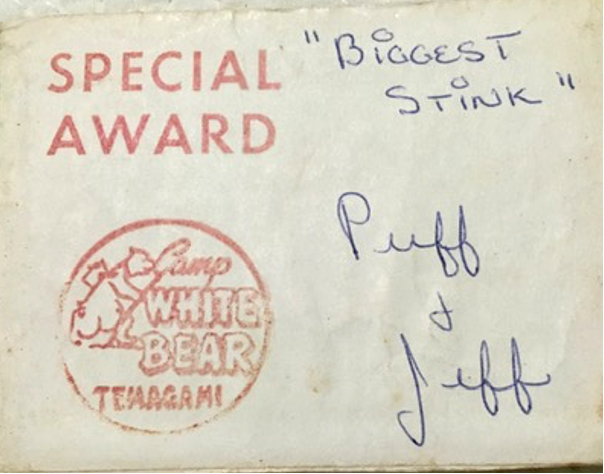 SPECIAL
AWARD
"BIGGEST
STINK"
Puff
&
Jeff
Camp
WHITE
BEAR
TEMAGAMI